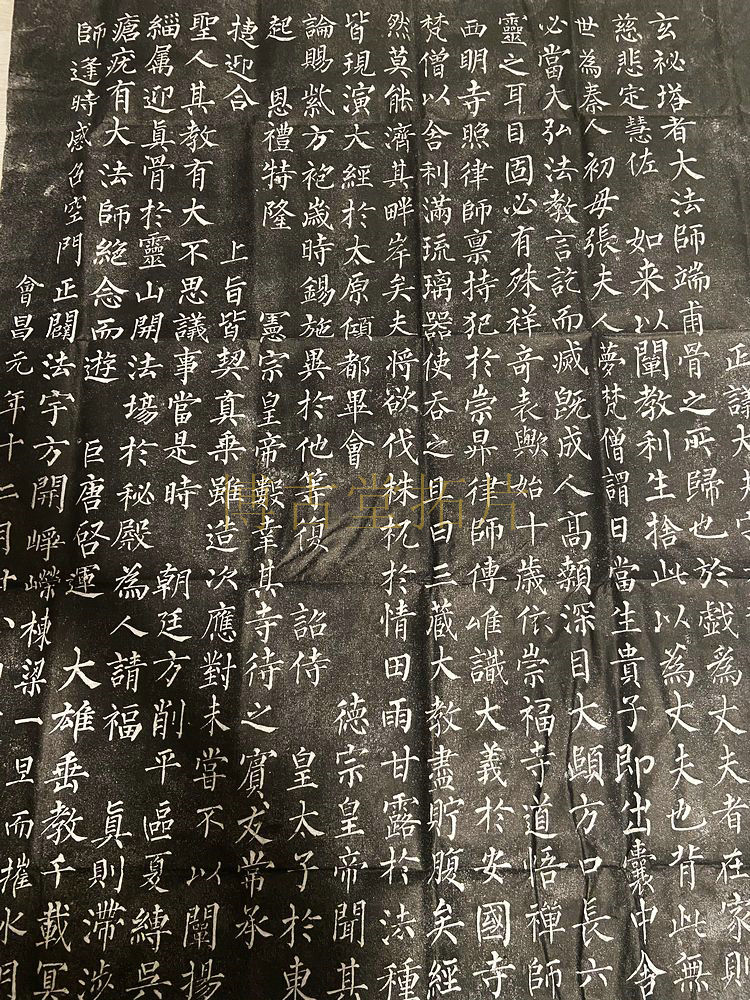 正議大夫守
玄祕塔者大法師端甫骨之所歸也於戲為丈夫者在家則
慈悲定慧佐 如来以闡教利生捨此以為丈夫也背此無
世為秦人初母張夫人夢梵僧謂曰當生貴子即出囊中舍
必當大弘法教言訖而滅既成人高顙深目大頤方口長六
靈之耳目固必有殊祥奇表歟始十歲依崇福寺道悟禪師
西明寺照律師禀持犯於崇昇律師傳唯識大義於安國寺
梵僧以舍利滿琉璃器使吞之且曰三藏大教盡貯腹矣經
然莫能濟其畔岸矣夫將欲伐株杌於情田雨甘露於法種
皆現演大經於太原傾都畢會 德宗皇帝聞其
論賜紫方袍歲時錫施異於他等復 詔侍 皇太子於東
起 恩禮特隆 憲宗皇帝數幸其寺待之賓友常承
捷迎合 上旨皆契真乘雖造次應對未嘗不以闡揚
聖人其教有大不思議事當是時 朝廷方削平區夏縛吳
緇属迎真骨於靈山開法場於秘殿為人請福 真則滯涉
瘡疣有大法師絕念而遊 巨唐啓運 大雄垂教千載冥
師逢時感召空門正闢法宇方開崢嶸棟梁一旦而摧水月
會昌元年十二月廿八
博古堂拓片